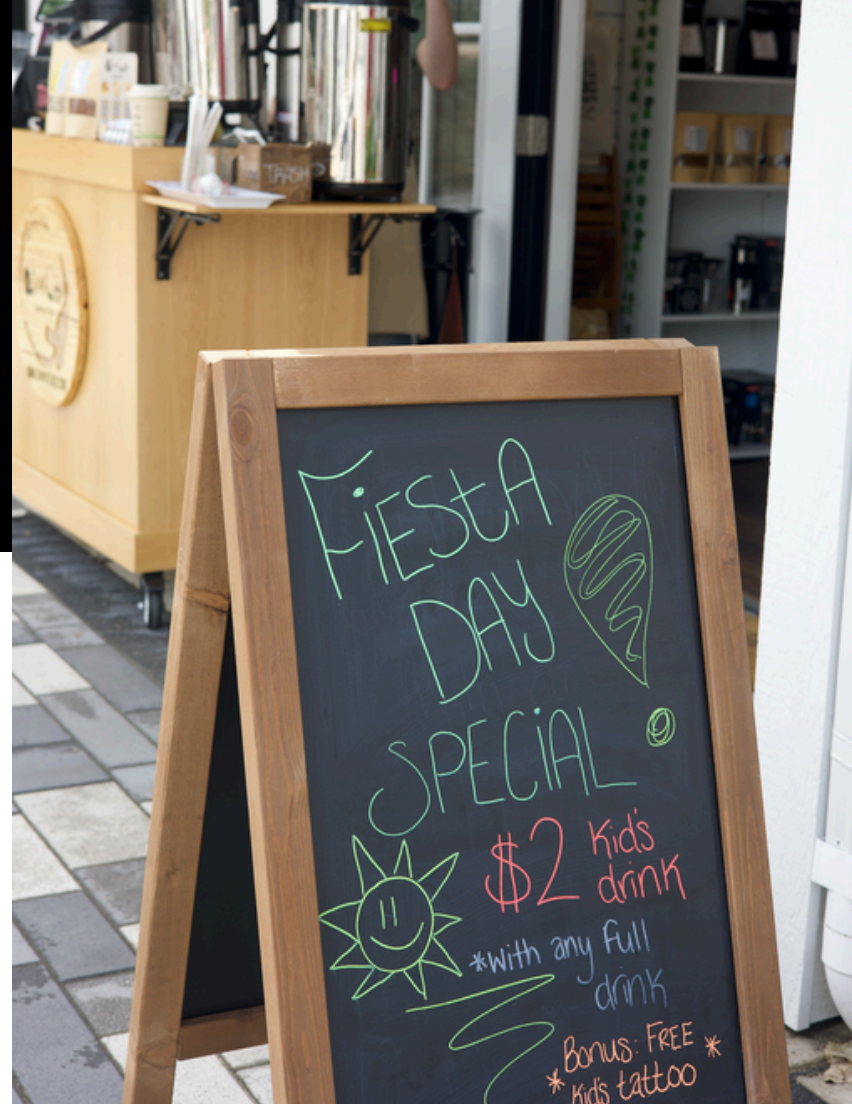 TRASH
FiESTA
DAY
SPECiAL
$2 Kid's
drink
*with any full
drink
Bonus: FREE
* Kid's tattoo *